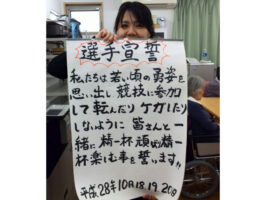 選手宣誓
私たちは若い頃の勇姿を
思い出し競技に参加
して転んだりケガしたり
しないように皆さんと一
緒に精一杯頑張り精一
杯楽しむ事を誓います!!
平成28年10月18.19.20日